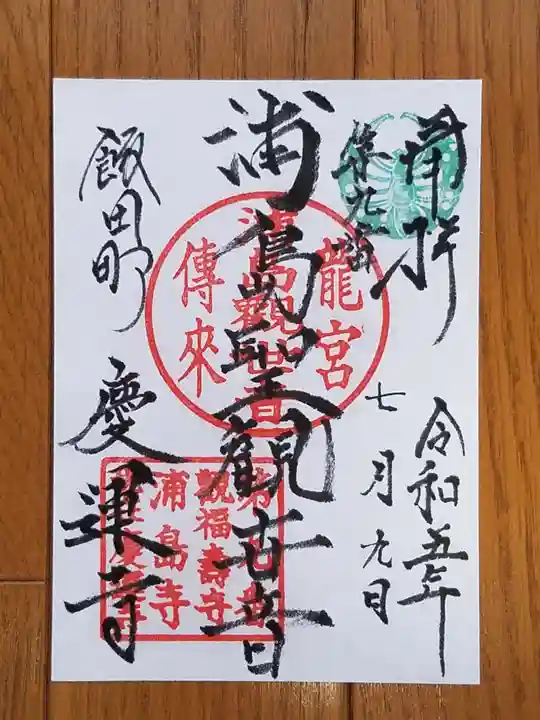 奉拝
第九番
令和五年
七月九日
浦島聖観世音
龍宮
浦島観世音
傳來
飯田町
慶運寺
觀福壽寺
浦島寺